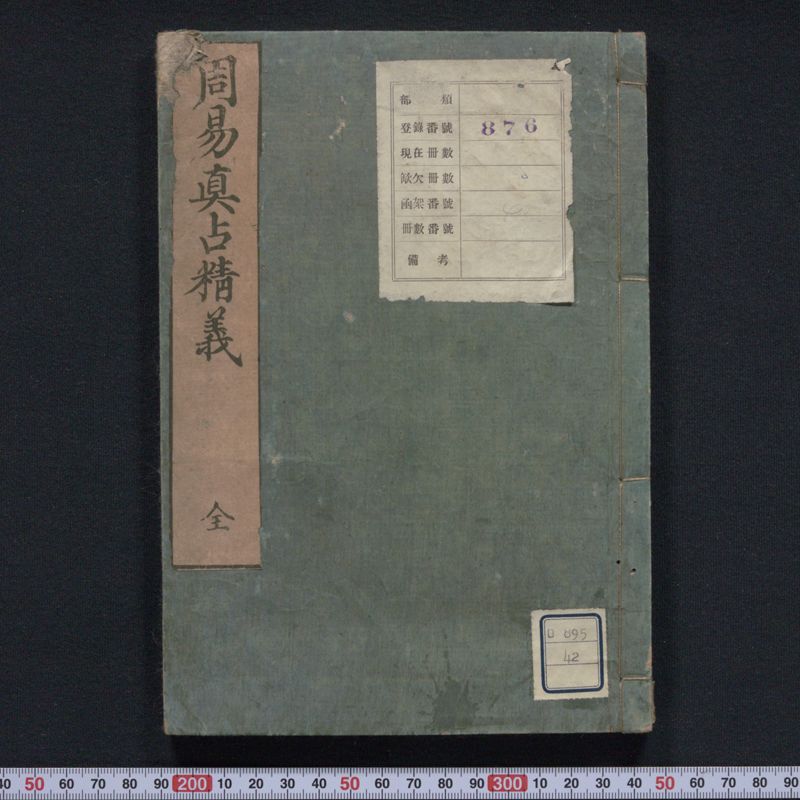 周易真占精義
全
部類
登錄番號 876
現在冊數
缺欠冊數
函架番號
冊數番號
備考
895
42
40 50 60 70 80 90 200 10 20 30 40 50 60 70 80 90 300 10 20 30 40 50 60 70 80 90